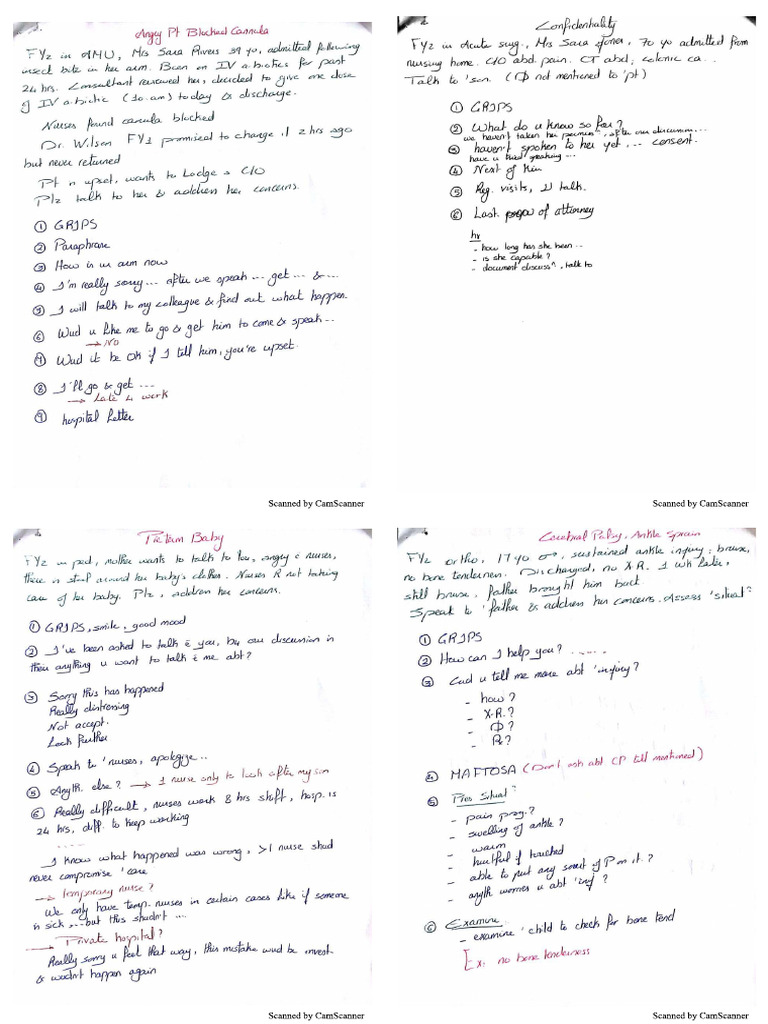 Angry Pt Blocked Cannula
FY2 in AMU, Mrs Sara Rivers 39 yo, admitted following
insect bite in her arm. Been on IV abiotics for past
24 hrs. Consultant reviewed her, decided to give one dose
of IV abiotic (10.am) today & discharge.
Nurses found canula blocked
Dr. Wilson FY1 promised to change it 2 hrs ago
but never returned
Pt is upset, wants to Lodge a C/O
Plz talk to her & address her concerns.
① GRIPS
② Paraphrase
③ How is ur arm now
④ I'm really sorry... after we speak... get... & ...
⑤ I will talk to my colleague & find out what happen.
⑥ Wud u like me to go & get him to come & speak...
→ No
⑦ Wud it be OK if I tell him, you're upset.
⑧ I'll go & get ...
→ Late 4 work
⑨ hospital letter
Scanned by CamScanner
Confidentiality
FY2 in Acute surg., Mrs Sara Jones, 70 yo admitted from
nursing home. C/O abd. pain. CT abd, colonic ca..
Talk to 'son. (Φ not mentioned to 'pt)
① GRIPS
② What do u know so far?
we haven't taken her permissn, after our discussion...
③ haven't spoken to her yet, ... consent.
have u tried speaking ...
④ Next of kin
⑤ Reg. visits, talk.
⑥ Last of attorney
hx
- how long has she been ..
- is she capable?
- document discussn, talk to
Scanned by CamScanner
Preterm Baby
FY2 in ped, mother wants to talk to you, angry c̄ nurses,
there is stool around her baby's clothes. Nurses R not taking
care of her baby. Plz, address her concerns.
① GRIPS, smile, good mood
② I've been asked to talk c̄ you, by our discussion is
there anything u want to talk c̄ me abt?
③ Sorry this has happened
Really distressing
Not accept.
Look further
④ Speak to 'nurses, apologize..
⑤ Anyth. else? → 1 nurse only to look after my son
⑥ Really difficult, nurses work 8 hrs shift, hosp. is
24 hrs, diff. to keep working
.....
I know what happened was wrong, >1 nurse shud
never compromise 'care
→ temporary nurse?
We only have temp. nurses in certain cases like if someone
is sick,... but this shudn't ...
→ Private hospital?
Really sorry u feel that way, this mistake wud be invest
& wudn't happen again
Scanned by CamScanner
Cerebral Palsy, Ankle Sprain
FY2 ortho, 17 yo ♂, sustained ankle injury; bruise,
no bone tenderness. Discharged, no X-R. 1 wk later,
still bruise, father brought him back.
Speak to 'father & address his concerns. Assess 'situatn
① GRIPS
② How can I help you? .....
③ Cud u tell me more abt 'injury?
- how?
- X-R.?
- Φ?
- Rx?
④ MAFTOSA (Don't ask abt CP till mentioned)
⑤ Pres Situatn
- pain prog.?
- swelling of ankle?
- warm
- hurtful if touched
- able to put any sort of P on it?
- anyth worries u abt 'inj?
⑥ Examine
- examine 'child to check for bone tend
Ex: no bone tenderness
Scanned by CamScanner